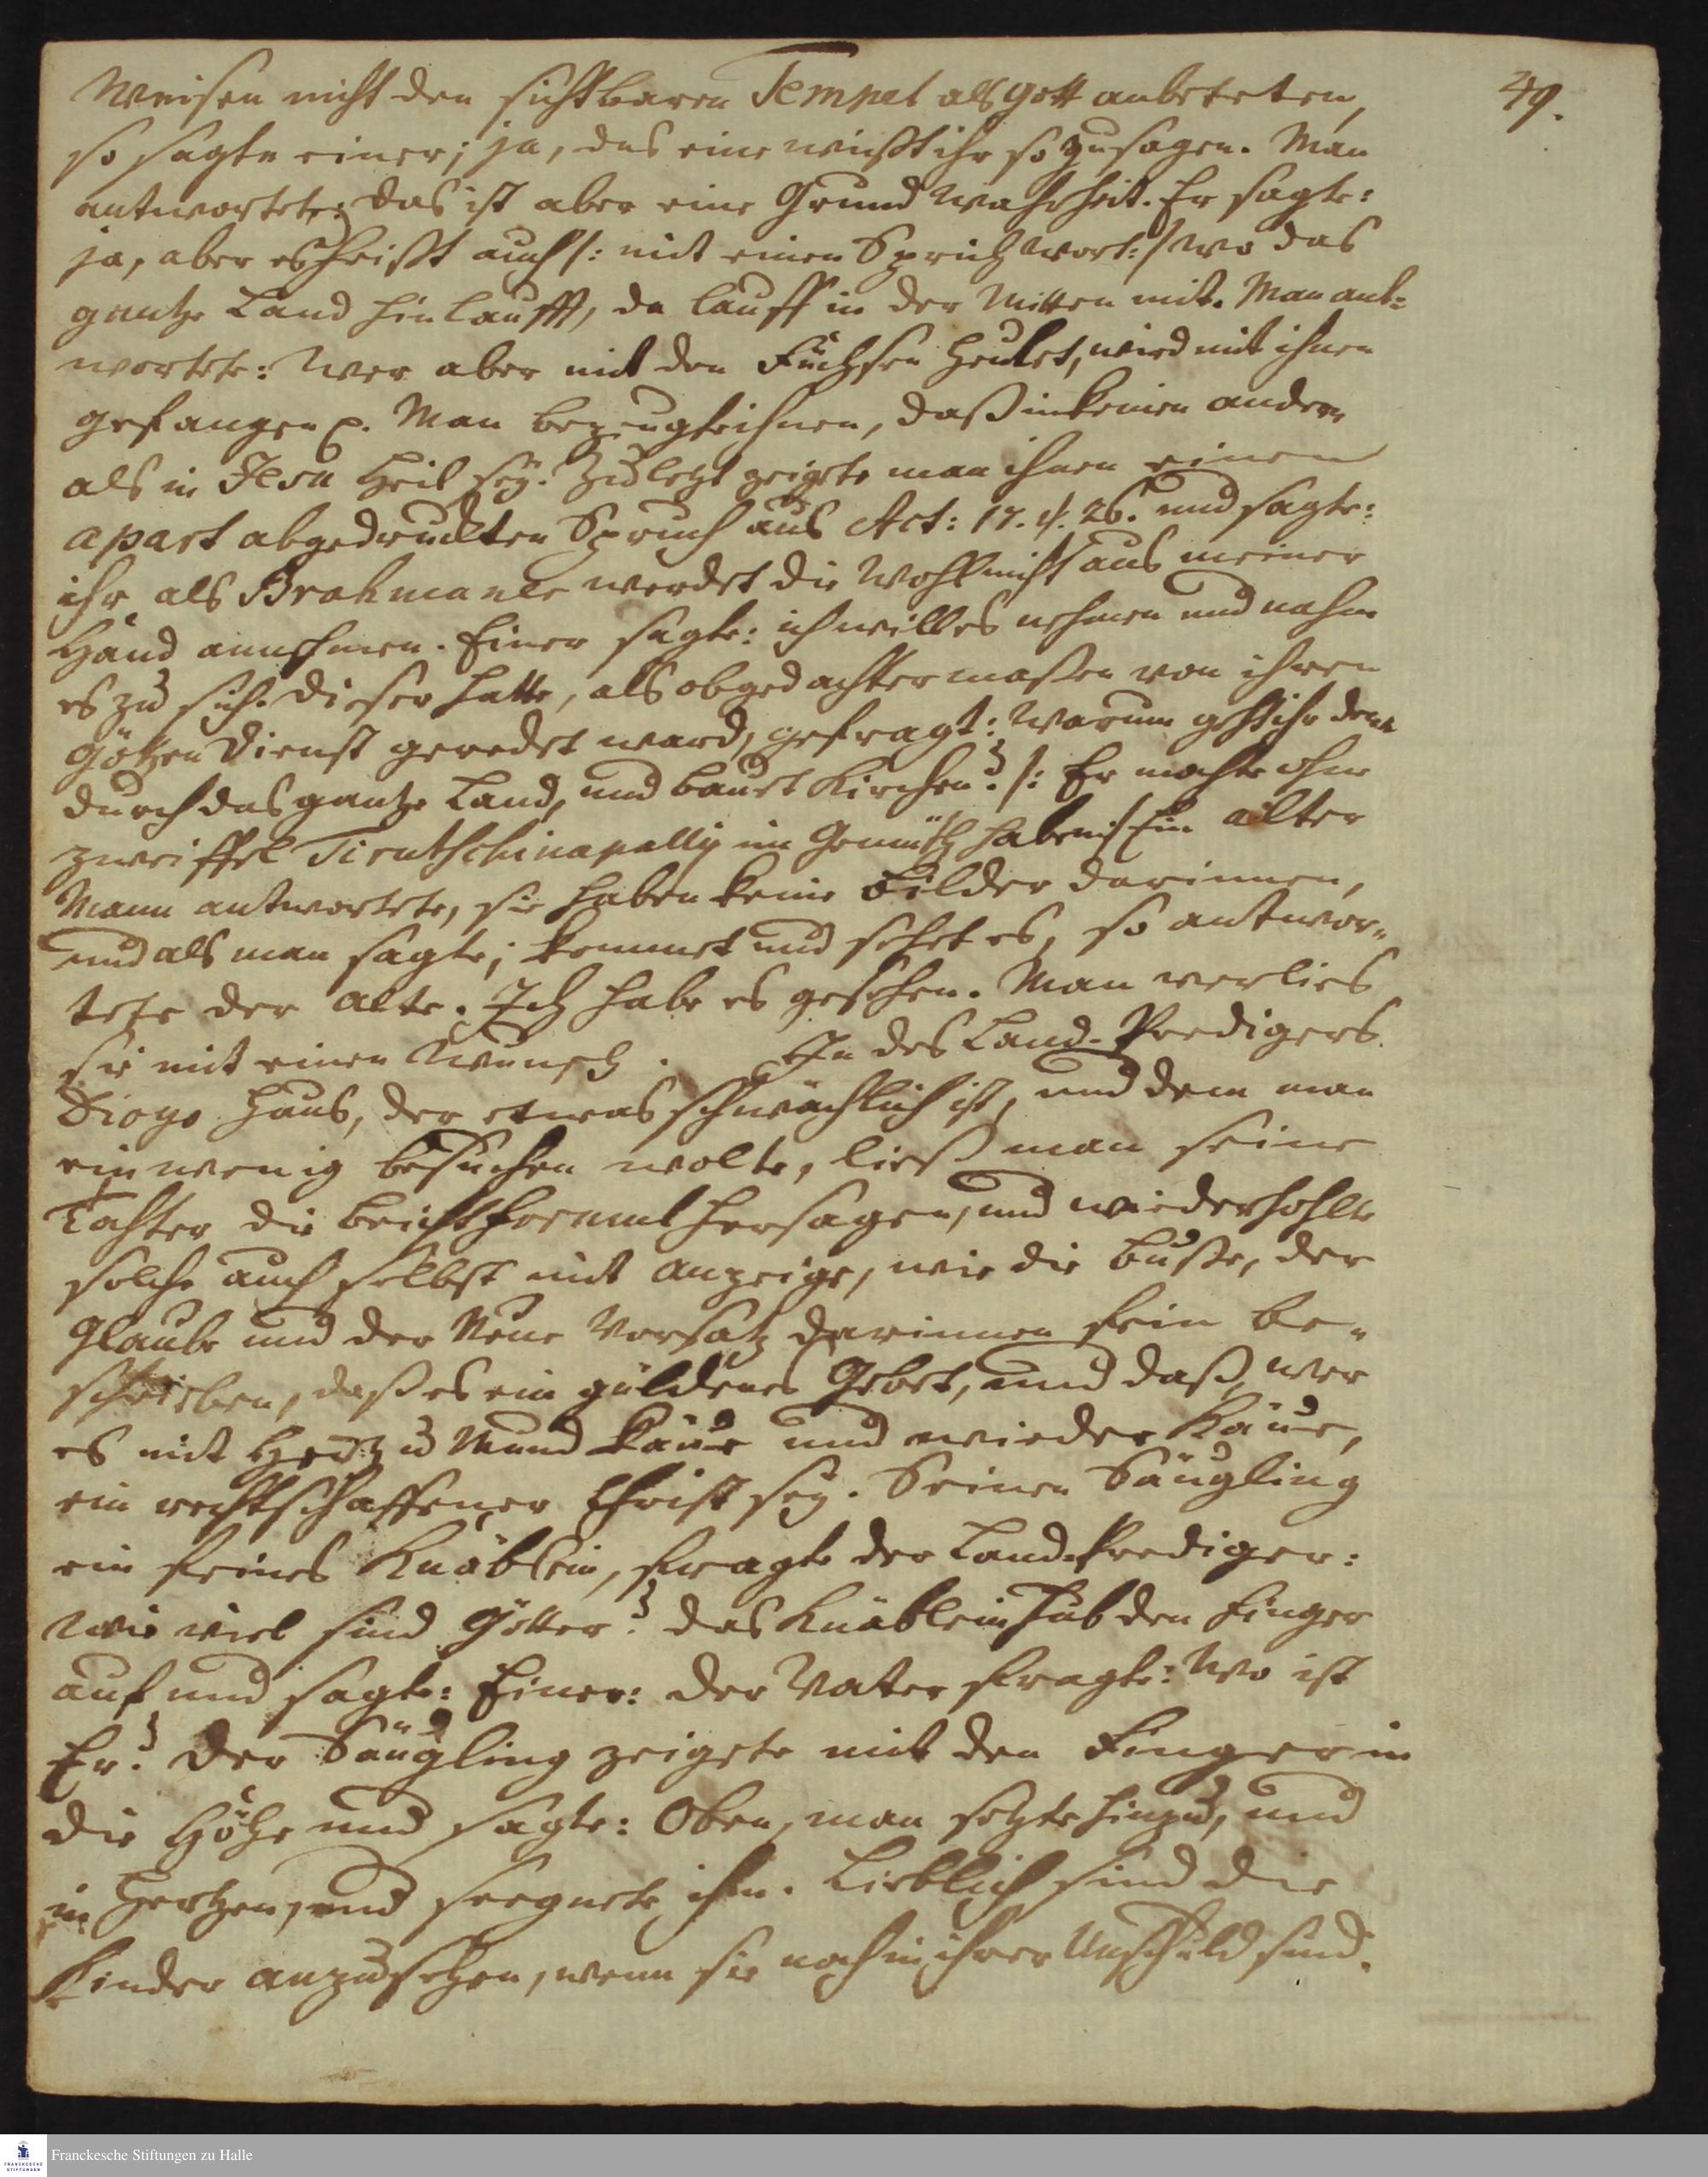 49.
Weisen nicht den sichtbaren Tempel als Gott anbeteten,
so sagte einer; ja, das eine wißt ihr so zu sagen. Man
antwortete: das ist aber eine Grund Wahrheit. Er sagte:
ja, aber es heißt auch /: mit einen Sprichwort :/ wo das
gantze Land hinlaufft, da lauff in der Mitten mit. Man ant-
wortete: Wer aber mit den Füchsen heulet, wird mit ihnen
gefangen p. Man bezeugte ihnen, daß in keinen andern
als in Jesu Heil sey. Zuletzt zeigete man ihnen einen
apart abgedruckten Spruch aus Act: 17. v. 26. und sagte:
ihr als Brahmanes werdet die wohl nicht aus meiner
Hand annehmen. Einer sagte: ich will es nehmen und nahm
es zu sich. Dieser hatte, als obgedachter maßen von ihren
Götzendienst geredet ward, gefragt: Warum geht ihr denn
durch das gantze Land, und bauet Kirchen? /: Er mochte ohne
zweiffel Tirutschinapally im Gemüth haben :/ Ein alter
Mann antwortete, sie haben keine Bilder darinnen,
und als man sagte; kommet und sehet es, so antwor-
tete der Alte. Ich habe es gesehen. Man verlies
sie mit einen Wunsch. In des Land-Predigers
Diogo Haus, der etwas schwächlich ist, und dem man
ein wenig besuchen wolte, ließ man seine
Tochter die Beichtformul hersagen, und wiederhohlte
solche auch selbst mit Anzeige, wie die Buße, der
Glaube und der Neue Vorsatz darinnen fein be-
schrieben, daß es ein güldenes Gebet, und daß, wer
es mit Hertz u Mund käue und wieder käue,
ein rechtschaffener Christ sey. Seinen Säugling
ein feines Knäblein, fragte der Land-Prediger:
Wie viel sind Götter? das Knäblein hub den Finger
auf und sagte: Einer: der Vater fragte: Wo ist
Er? Der Säugling zeigete mit den Finger in
die Höhe und sagte: Oben, man setzte hinzu, und
im Hertzen, und seegnete ihn. Lieblich sind die
Kinder anzusehen, wenn sie noch in ihrer Unschuld sind.
Franckesche Stiftungen zu Halle
FRANCKESCHE
STIFTUNGEN